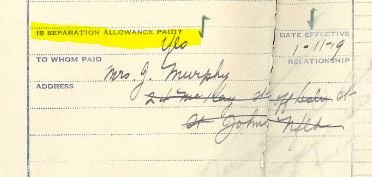 IS SEPARATION ALLOWANCE PAID? DATE EFFECTIVE
Yes 1-11-19
TO WHOM PAID RELATIONSHIP
Mrs J. Murphy
ADDRESS
St John's Nfld